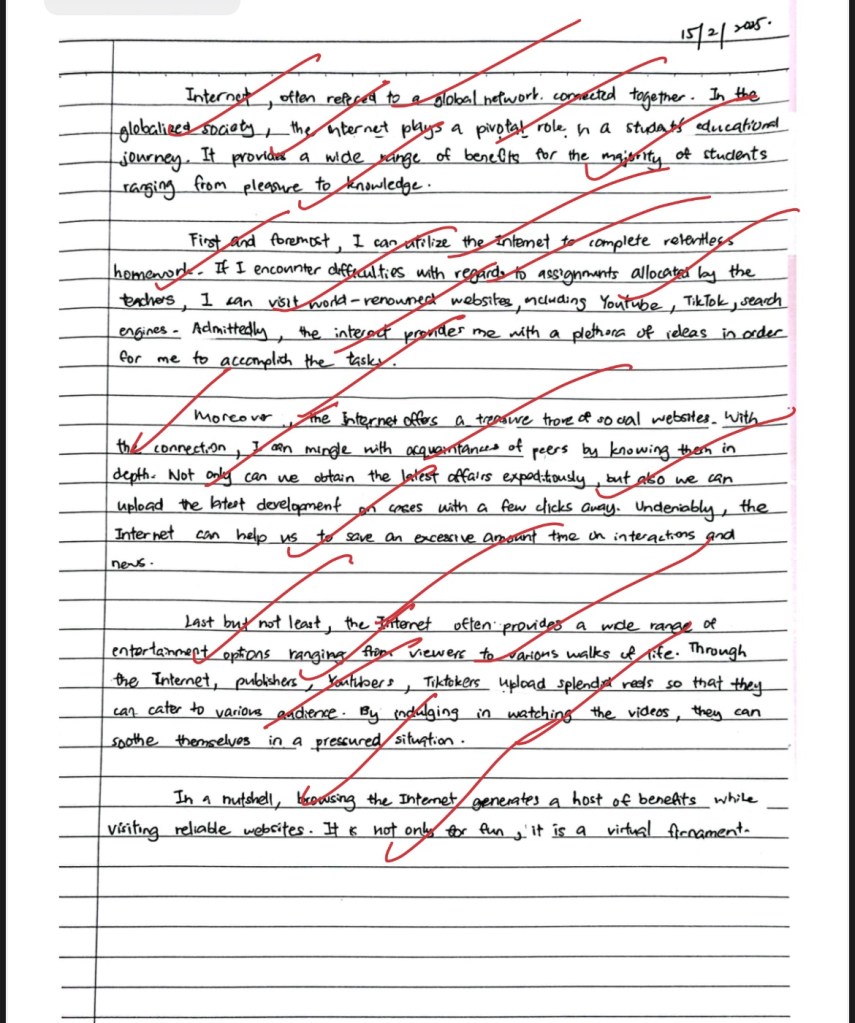 15/2/2025.
Internet, often refered to a global network. connected together. In the
globalized society, the internet plays a pivotal role in a student's educational
journey. It provides a wide range of benefits for the majority of students
ranging from pleasure to knowledge.
First and foremost, I can utilize the Internet to complete relentless
homework. If I encounter difficulties with regards to assignments allocated by the
teachers, I can visit world-renowned websites, including YouTube, TikTok, search
engines. Admittedly, the internet provides me with a plethora of ideas in order
for me to accomplish the tasks.
Moreover, the Internet offers a treasure trove of social websites. With
the connection, I can mingle with acquaintances of peers by knowing them in
depth. Not only can we obtain the latest affairs expeditiously, but also we can
upload the latest development on cases with a few clicks away. Undeniably, the
Internet can help us to save an excessive amount time on interactions and
news.
Last but not least, the Internet often provides a wide range of
entertainment options ranging from viewers to various walks of life. Through
the Internet, publishers, Youtubers, Tiktokers upload splendid reels so that they
can cater to various audience. By indulging in watching the videos, they can
soothe themselves in a pressured situation.
In a nutshell, browsing the Internet generates a host of benefits while
visiting reliable websites. It is not only for fun, it is a virtual firmament.